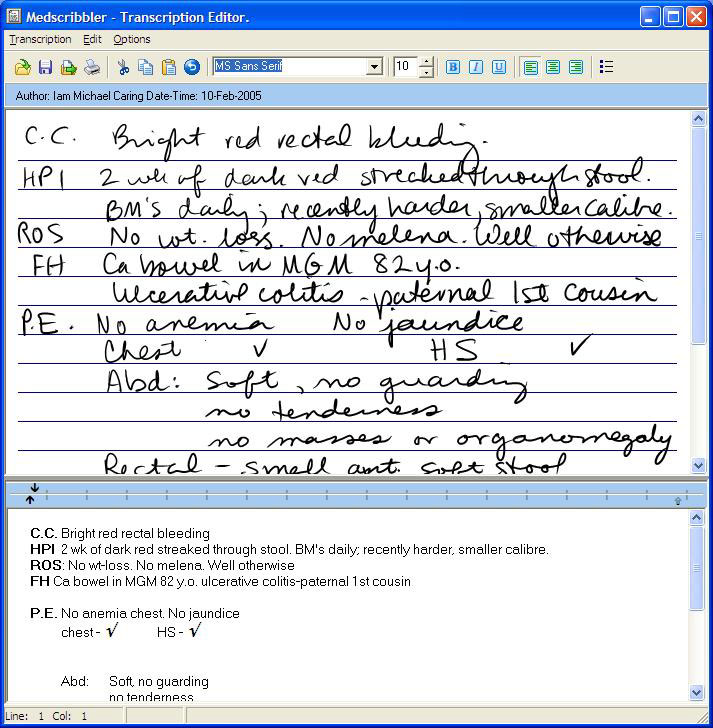 Medscribbler - Transcription Editor.
Transcription Edit Options
MS Sans Serif 10 B I U
Author: Iam Michael Caring Date-Time: 10-Feb-2005
C.C. Bright red rectal bleeding.
HPI 2 wk of dark red streaked through stool.
BM's daily; recently harder, smaller calibre.
ROS No wt. loss. No melena. Well otherwise
FH Ca bowel in MGM 82 y.o.
Ulcerative colitis - paternal 1st cousin
P.E. No anemia No jaundice
Chest ✓ HS ✓
Abd: Soft, no guarding
no tenderness
no masses or organomegaly
Rectal - small amt. soft stool
C.C. Bright red rectal bleeding
HPI 2 wk of dark red streaked through stool. BM's daily; recently harder, smaller calibre.
ROS: No wt-loss. No melena. Well otherwise
FH Ca bowel in MGM 82 y.o. ulcerative colitis-paternal 1st cousin
P.E. No anemia chest. No jaundice
chest - √ HS - √
Abd: Soft, no guarding
no tenderness
Line: 1 Col: 1